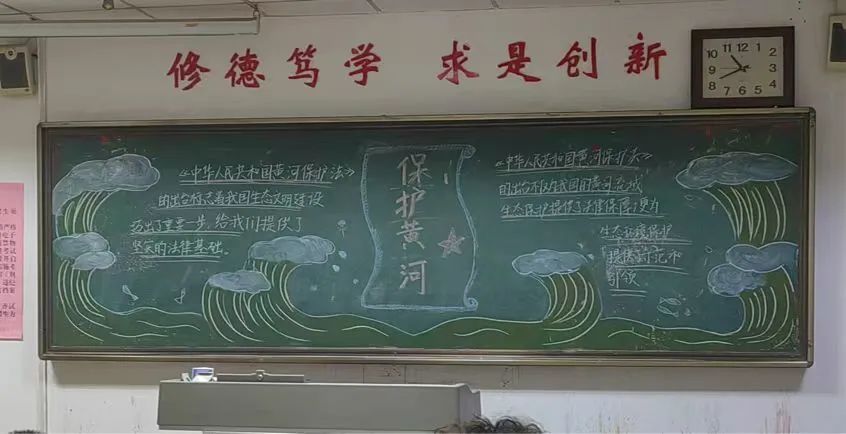 修德笃学 求是创新
10 11 12 1 2 3 4 5 6 7 8 9
《中华人民共和国黄河保护法》
的出台标志着我国生态文明建设
迈出了重要一步,给我们提供了
坚实的法律基础。
保护黄河
《中华人民共和国黄河保护法》
的出台不仅为我国的黄河流域
生态保护提供了法律保障,更为
生态环境保护
提供示范和
引领